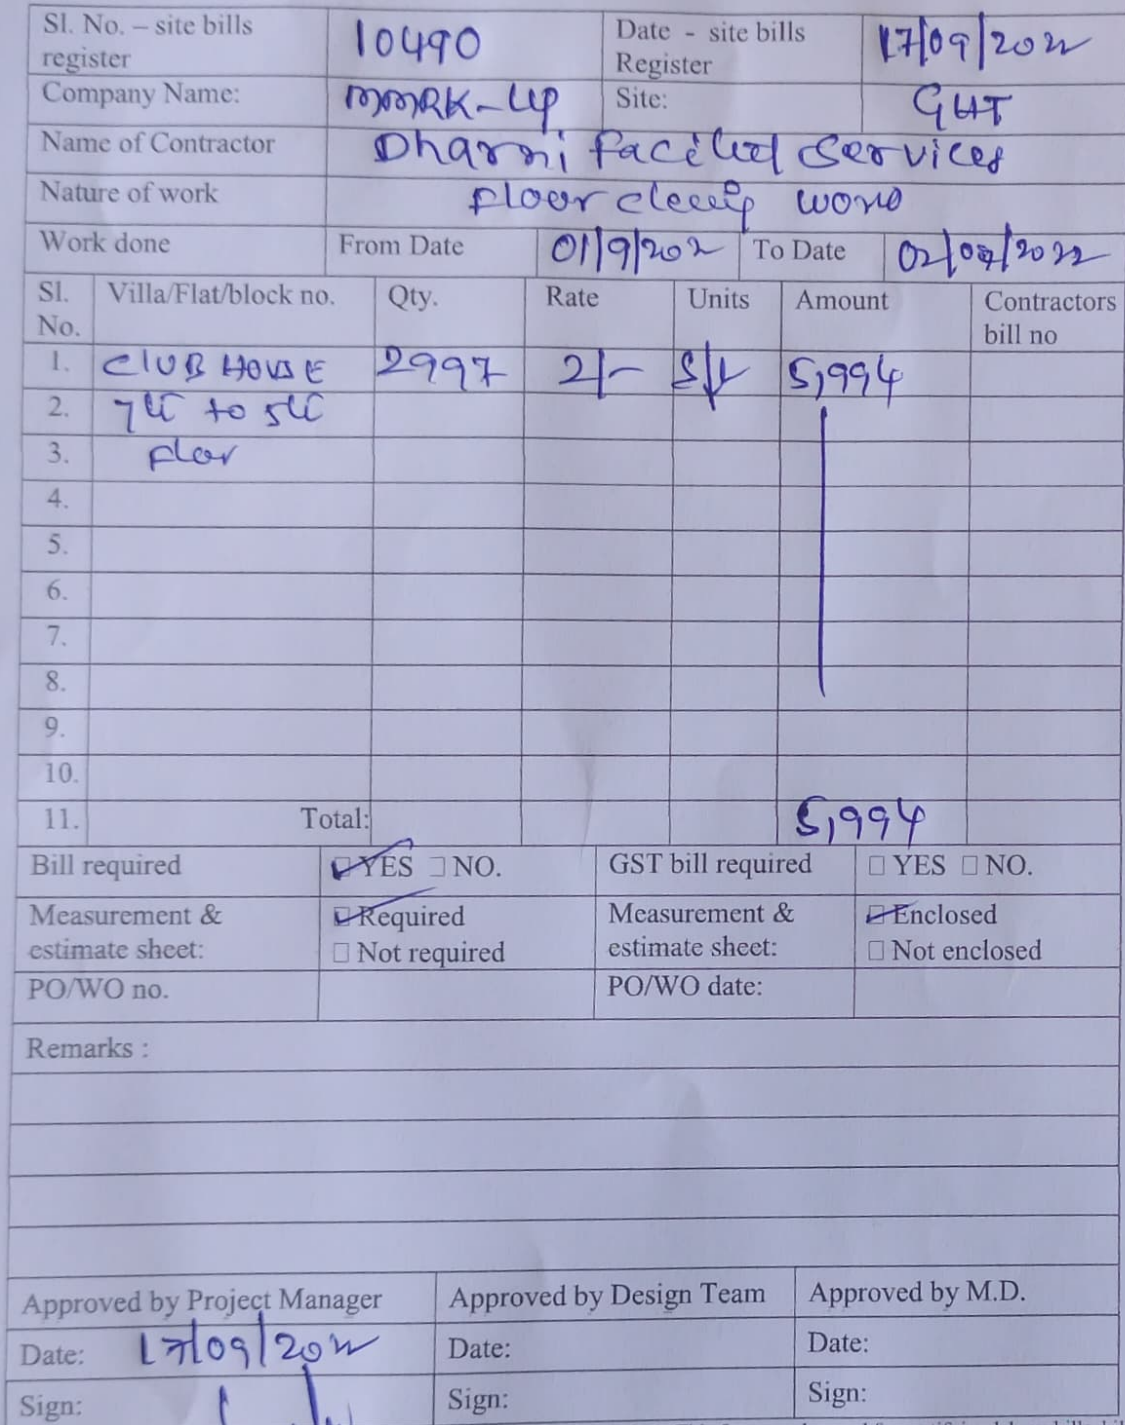 Sl. No. – site bills register 10490 Date - site bills Register 17/09/2022
Company Name: MMRK-LLP Site: GHT
Name of Contractor Services
Nature of work Floor
Work done From Date 01/9/202 To Date 02/09/2022
Sl. No. Villa/Flat/block no. Qty. Rate Units Amount Contractors bill no
1. CLUB HOUSE 2997 2/- 5,994
2. to
3.
4.
5.
6.
7.
8.
9.
10.
11. Total: 5,994
Bill required ☑ YES ☐ NO. GST bill required ☐ YES ☐ NO.
Measurement & estimate sheet: ☑ Required ☐ Not required Measurement & estimate sheet: ☑ Enclosed ☐ Not enclosed
PO/WO no. PO/WO date:
Remarks :
Approved by Project Manager Approved by Design Team Approved by M.D.
Date: 17/09/2022 Date: Date:
Sign: Sign: Sign: